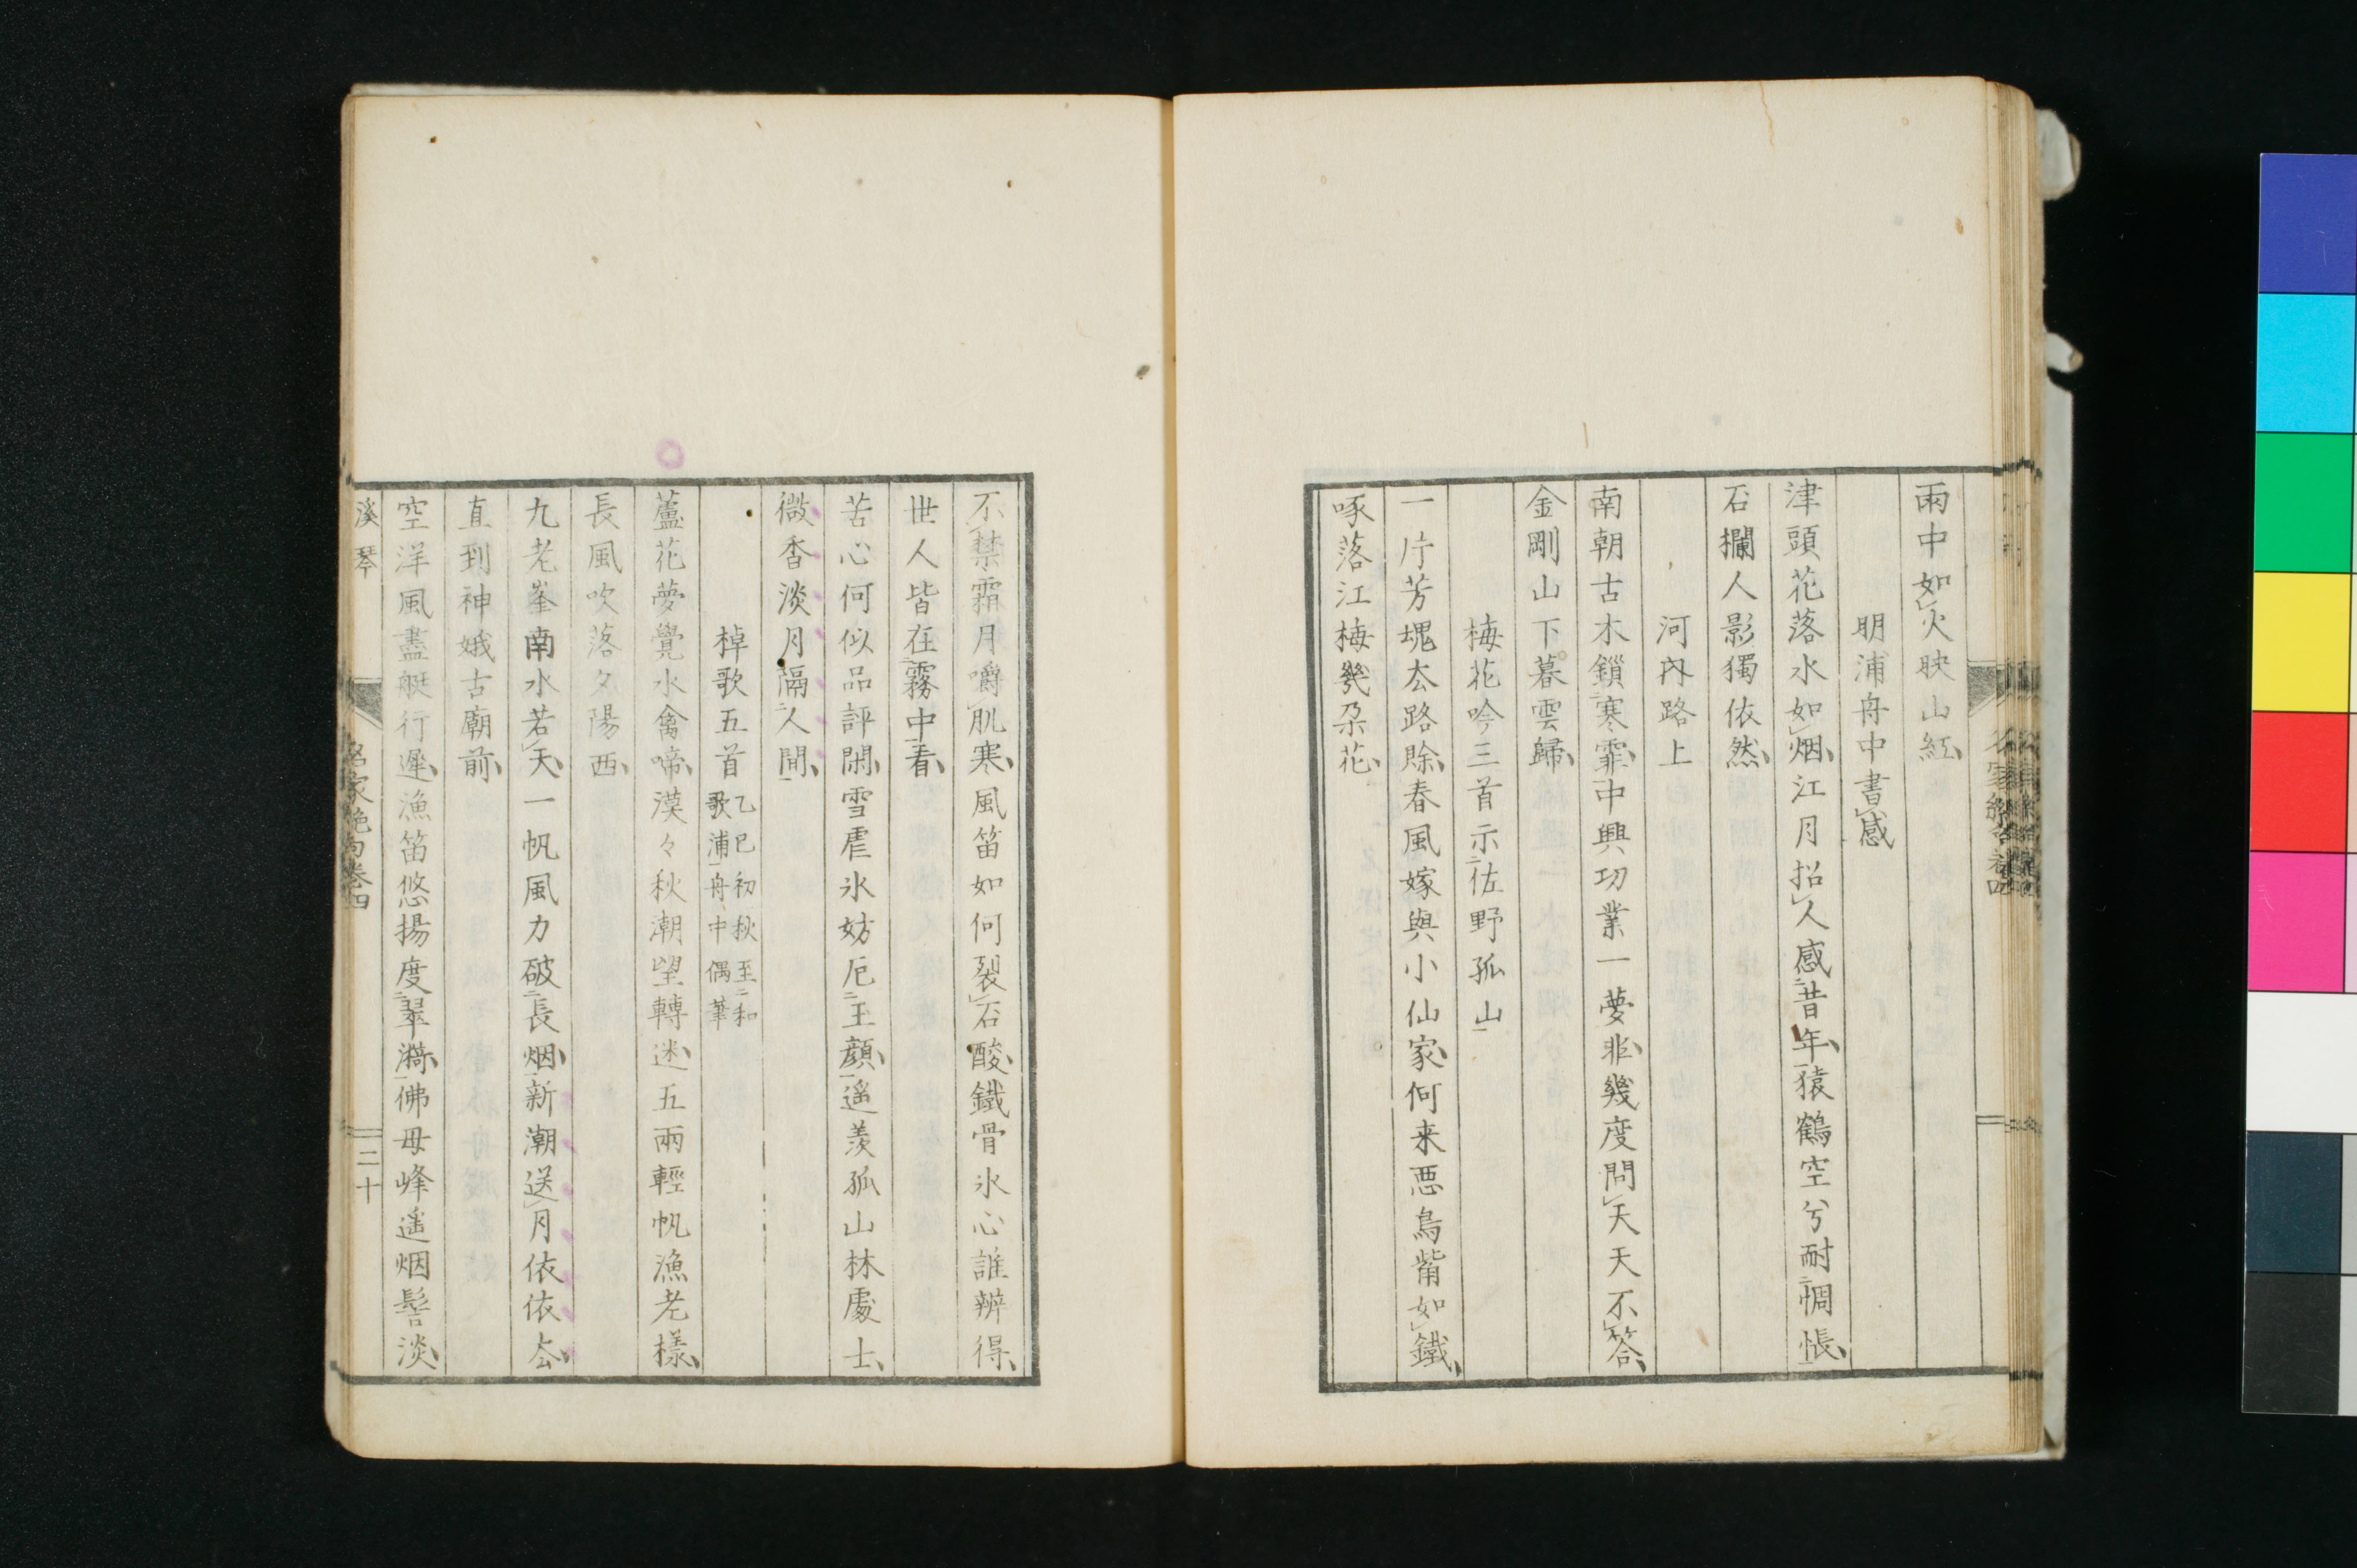 雨中如火映山紅
明浦舟中書感
津頭花落水如烟江月招人感昔年猿鶴空兮耐惆悵
石欄人影獨依然
河内路上
南朝古木鎖寒霏中興功業一夢非幾度問天天不答
金剛山下暮雲歸
梅花吟三首示佐野孤山
一片芳塊厺路賖春風嫁與小仙家何来悪鳥觜如鐵
啄落江梅幾朶花
不禁霜月嚼肌寒風笛如何裂石酸鐵骨氷心誰辨得
世人皆在霧中看
苦心何似品評閑雪虐氷妨厄玉顔遥羨孤山林處士
微香淡月隔人間
棹歌五首 乙巳初秋至和歌浦舟中偶筆
蘆花夢覺水禽啼漠々秋潮望轉迷五兩輕帆漁老樣
長風吹落夕陽西
九老峯南水若天一帆風力破長烟新潮送月依依厺
直到神娥古廟前
空洋風盡艇行遲漁笛悠揚度翠漪佛母峰遥烟髻淡
溪琴
名家絶句卷四
二十